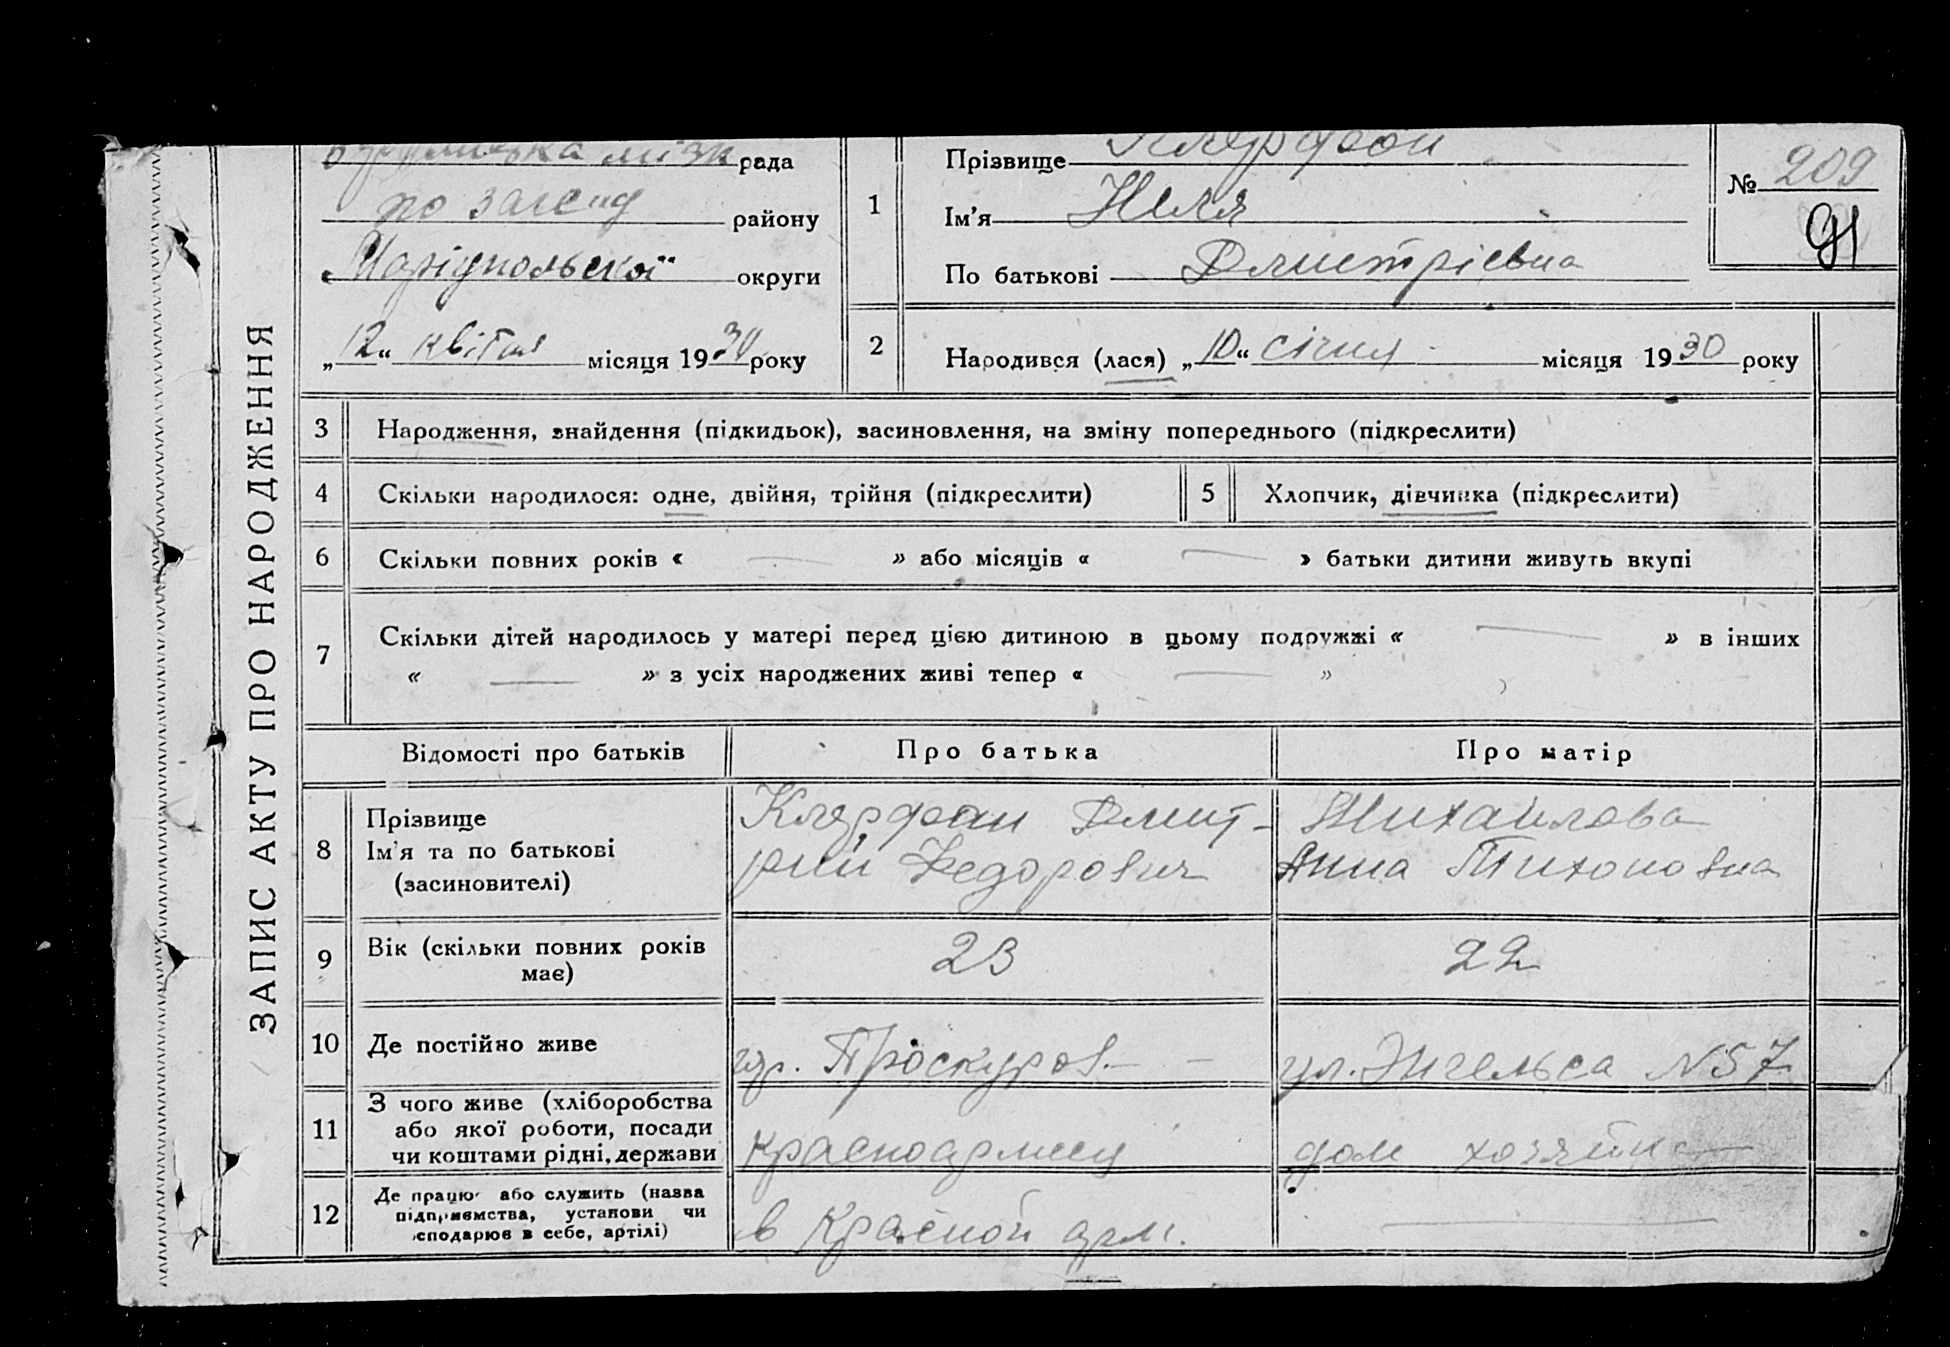 ЗАПИС АКТУ ПРО НАРОДЖЕННЯ
рада
по загсид району
Маріупольської округи
„12“ квітня місяця 1930 року
1
Прізвище
Ім'я Неля
По батькові Дмитрієвна
№ 209
91
2
Народився (лася) „10“ січня місяця 1930 року
3 Народження, знайдення (підкидьок), засиновлення, на зміну попереднього (підкреслити)
4 Скільки народилося: одне, двійня, трійня (підкреслити)
5 Хлопчик, дівчинка (підкреслити)
6 Скільки повних років « — » або місяців « — » батьки дитини живуть вкупі
7 Скільки дітей народилось у матері перед цією дитиною в цьому подружжі « — » в інших
« — » з усіх народжених живі тепер « — »
Відомості про батьків Про батька Про матір
8
Прізвище
Ім'я та по батькові
(засиновителі)
Дмит-
рий Федорович
Михайлова
Анна Тихоновна
9
Вік (скільки повних років
має)
23
22
10 Де постійно живе
гор. Проскуров — —
ул. Энгельса N57
11
З чого живе (хліборобства
або якої роботи, посади
чи коштами рідні, держави
красноармеец
дом хозяйка
12
Де працює або служить (назва
підприємства, установи чи
сподарює в себе, артілі)
в Красной арм.
—